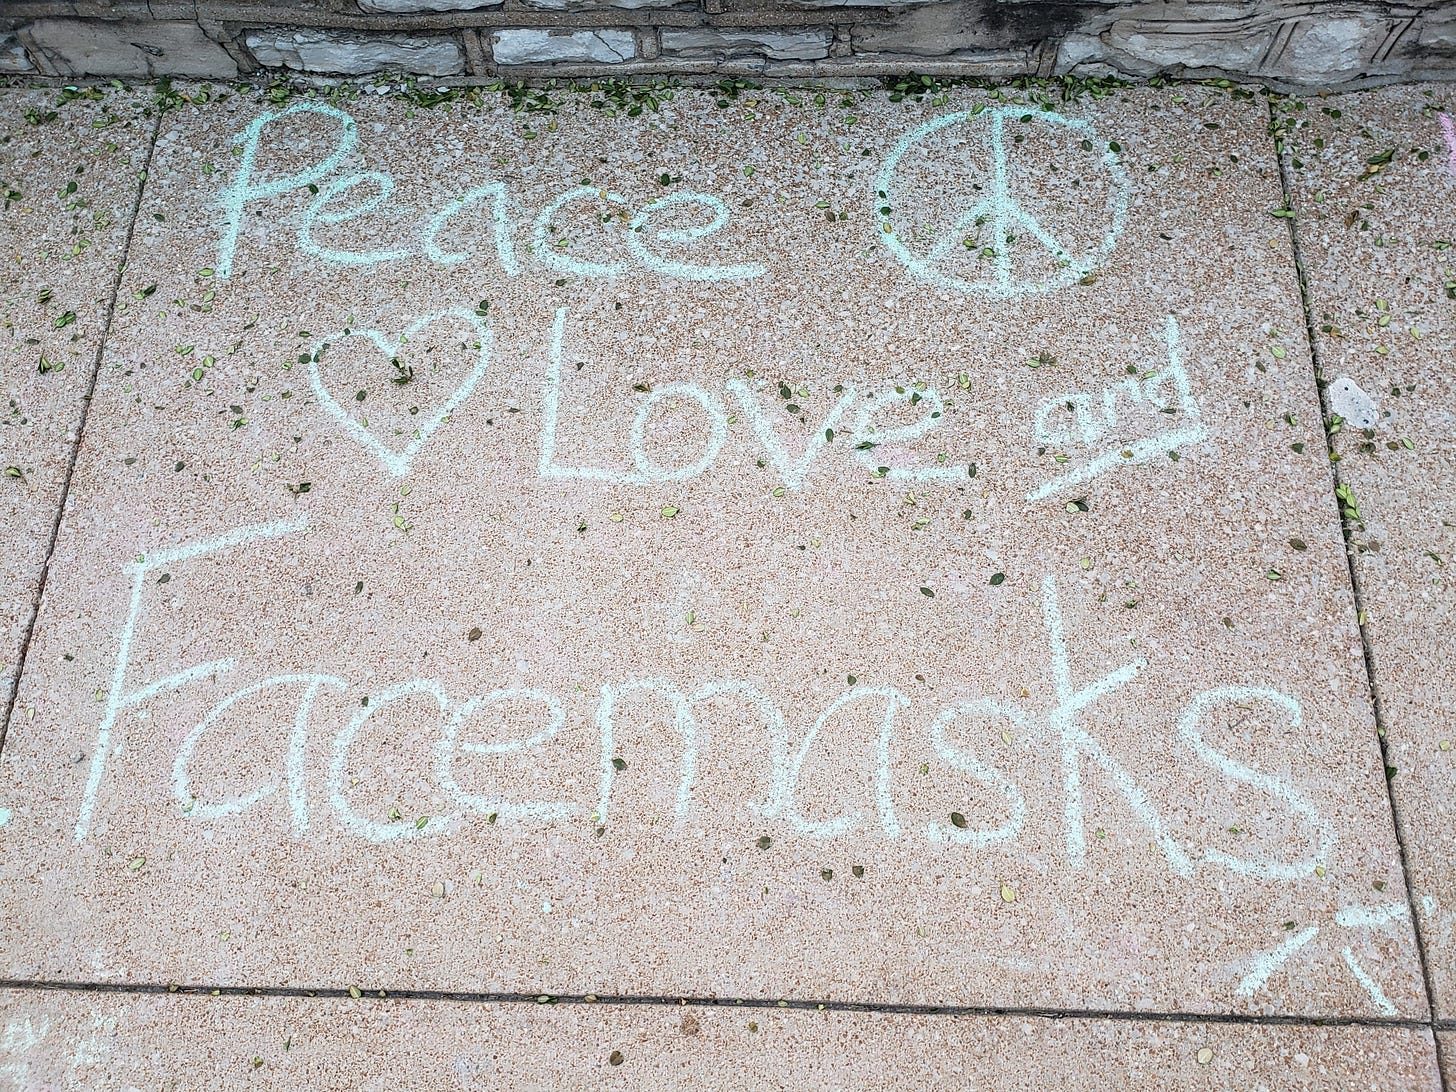 Peace
Love and
Facemasks